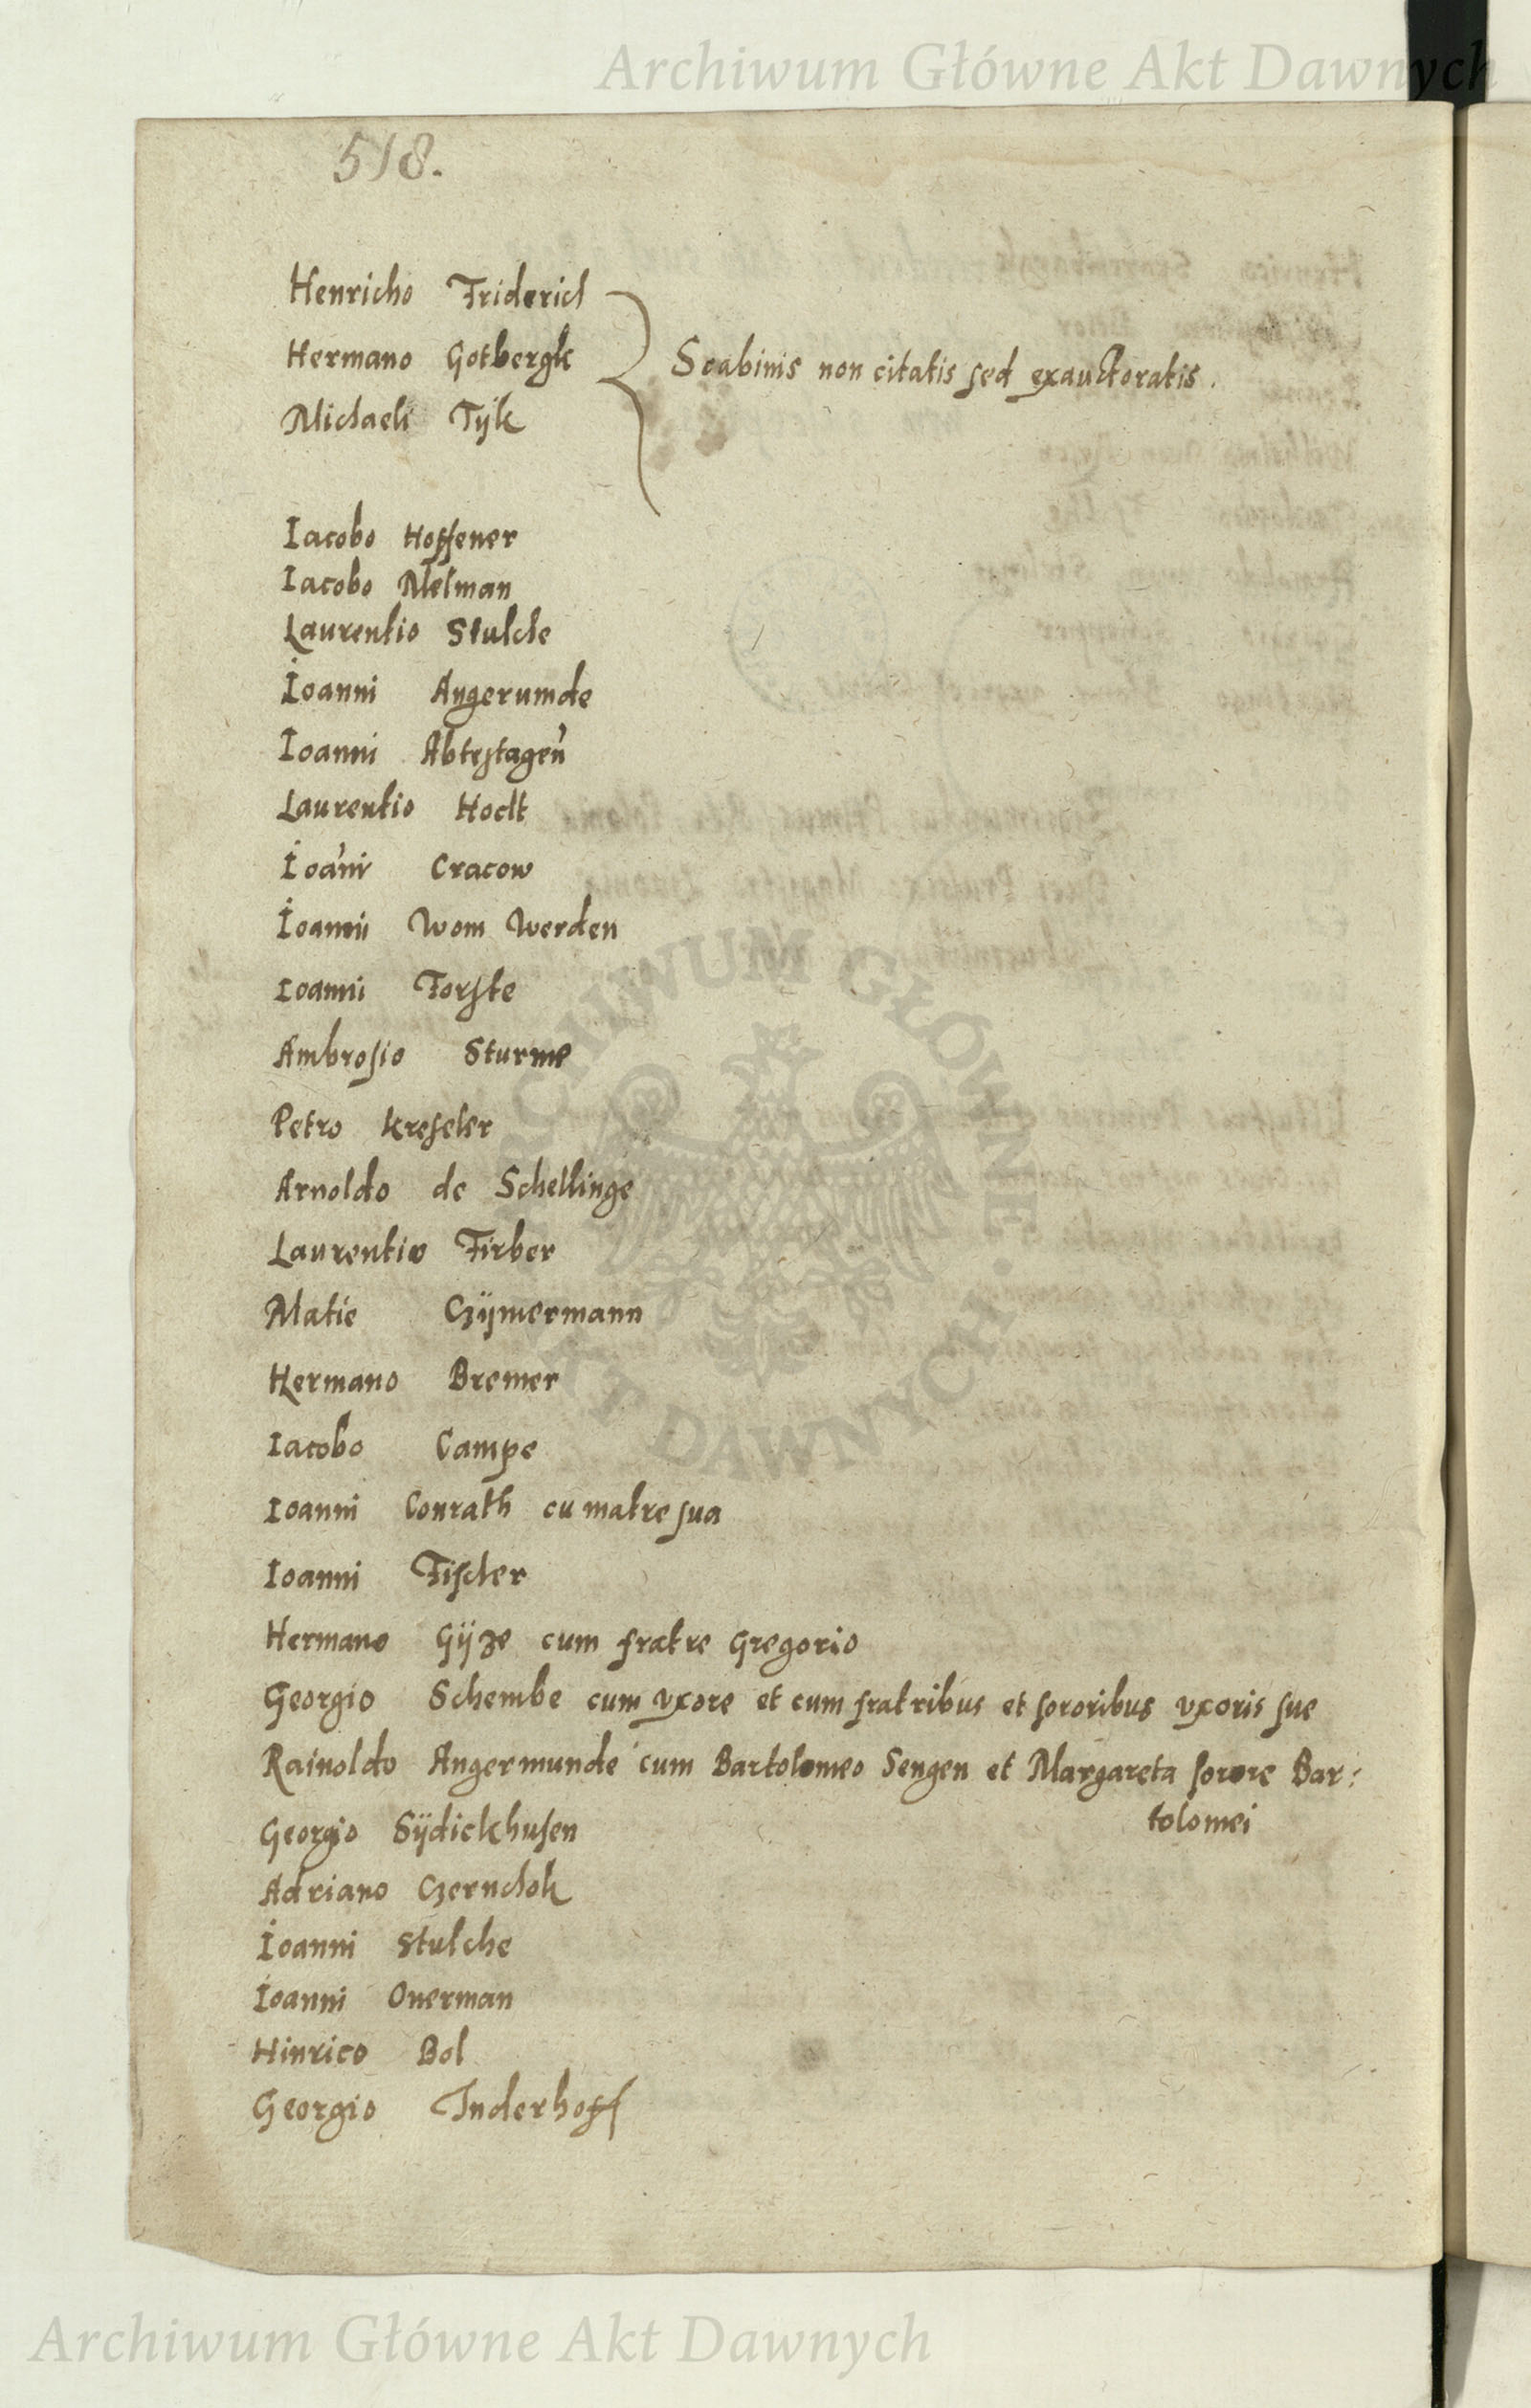 Archiwum Główne Akt Dawnych
518.
Henricho Friderich
Hermano Gotbergk Scabinis non citatis sed exauctoratis.
Michaeli Tÿk
Iacobo Hoffener
Iacobo Melman
Laurentio Stulche
Ioanni Angerumde
Ioanni Abteshagen̄
Laurentio Hocht
Ioān̄i Cracow
Ioanni Wom Werden
Ioanni Forste
Ambrosio Sturme
Petro Kreseler
Arnoldo de Schellinge
Laurentio Firber
Matie Czÿmermann
Hermano Bremer
Iacobo Campe
Ioanni Conrath cu matre sua
Ioanni Fischer
Hermano Gÿze cum fratre Gregorio
Georgio Schembe cum vxore et cum fratribus et sororibus vxoris sue
Rainoldo Angermunde cum Bartolomeo Sengen et Margareta sorore Bar:
tolomei
Georgio Sÿdickhusen
Adriano Czernchok
Ioanni Stulche
Ioanni Onerman
Hinrico Bol
Georgio Inderhoff
ARCHIWUM GŁÓWNE AKT DAWNYCH
Archiwum Główne Akt Dawnych